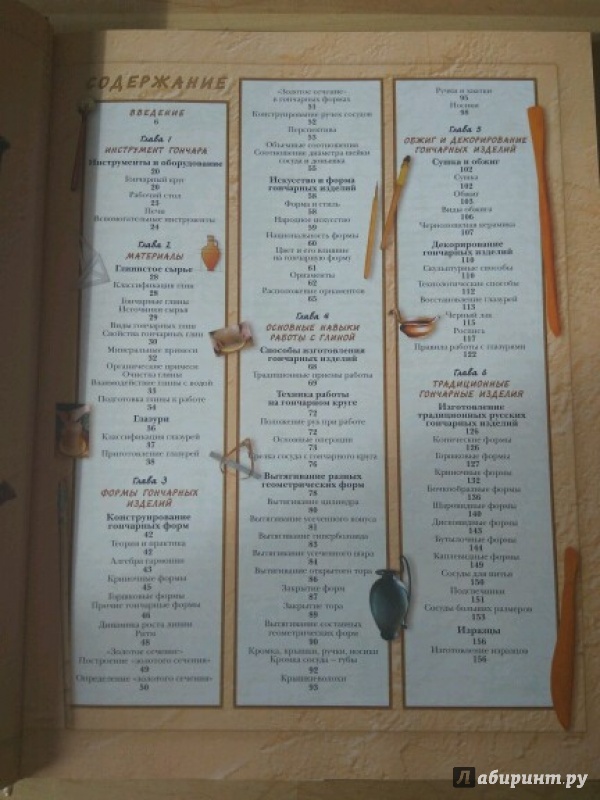 СОДЕРЖАНИЕ
ВВЕДЕНИЕ
6
Глава 1
ИНСТРУМЕНТ ГОНЧАРА
Инструменты и оборудование
20
Гончарный круг
20
Рабочий стол
23
Печи
Вспомогательные инструменты
24
Глава 2
МАТЕРИАЛЫ
Глинистое сырье
28
Классификация глин
28
Гончарные глины
Источники сырья
29
Виды гончарных глин
Свойства гончарных глин
30
Минеральные примеси
32
Органические примеси
Очистка глины
Взаимодействие глины с водой
33
Подготовка глины к работе
34
Глазури
36
Классификация глазурей
37
Приготовление глазурей
38
Глава 3
ФОРМЫ ГОНЧАРНЫХ
ИЗДЕЛИЙ
Конструирование
гончарных форм
42
Теория и практика
42
Алгебра гармонии
43
Крыночные формы
45
Горшковые формы
Прочие гончарные формы
46
Динамика роста линии
Ритм
48
«Золотое сечение»
Построение «золотого сечения»
49
Определение «золотого сечения»
50
«Золотое сечение»
в гончарных формах
51
Конструирование ручек сосудов
52
Перспектива
53
Объемные соотношения
Соотношения диаметра шейки
сосуда и донышка
55
Искусство и форма
гончарных изделий
58
Форма и стиль
58
Народное искусство
59
Национальность формы
60
Цвет и его влияние
на гончарную форму
61
Орнаменты
62
Расположение орнаментов
65
Глава 4
ОСНОВНЫЕ НАВЫКИ
РАБОТЫ С ГЛИНОЙ
Способы изготовления
гончарных изделий
68
Традиционные приемы работы
69
Техника работы
на гончарном круге
72
Положение рук при работе
72
Основные операции
73
сосуда с гончарного круга
76
Вытягивание разных
геометрических форм
78
Вытягивание цилиндра
80
Вытягивание усеченного конуса
81
Вытягивание гиперболоида
83
Вытягивание усеченного шара
84
Вытягивание открытого тора
86
Закрытие форм
87
Закрытие тора
89
Вытягивание составных
геометрических форм
90
Кромка, крышки, ручки, носики
Кромка сосуда – губы
92
93
Ручки и защипы
95
Носики
98
Глава 5
ОБЖИГ И ДЕКОРИРОВАНИЕ
ГОНЧАРНЫХ ИЗДЕЛИЙ
Сушка и обжиг
102
Сушка
102
Обжиг
103
Виды обжига
106
Чернолощеная керамика
107
Декорирование
гончарных изделий
110
Скульптурные способы
110
Технологические способы
112
Восстановление глазурей
113
Черный лак
115
Роспись
117
Правила работы с глазурями
122
Глава 6
ТРАДИЦИОННЫЕ
ГОНЧАРНЫЕ ИЗДЕЛИЯ
Изготовление
традиционных русских
гончарных изделий
126
Конические формы
126
Горшковые формы
127
Крыночные формы
132
Бочкообразные формы
136
Шаровидные формы
140
Дисковидные формы
143
Бутылочные формы
144
Каплевидные формы
149
Сосуды для питья
150
Подсвечники
151
Сосуды больших размеров
153
Изразцы
156
Изготовление изразцов
156
Лабиринт.ру